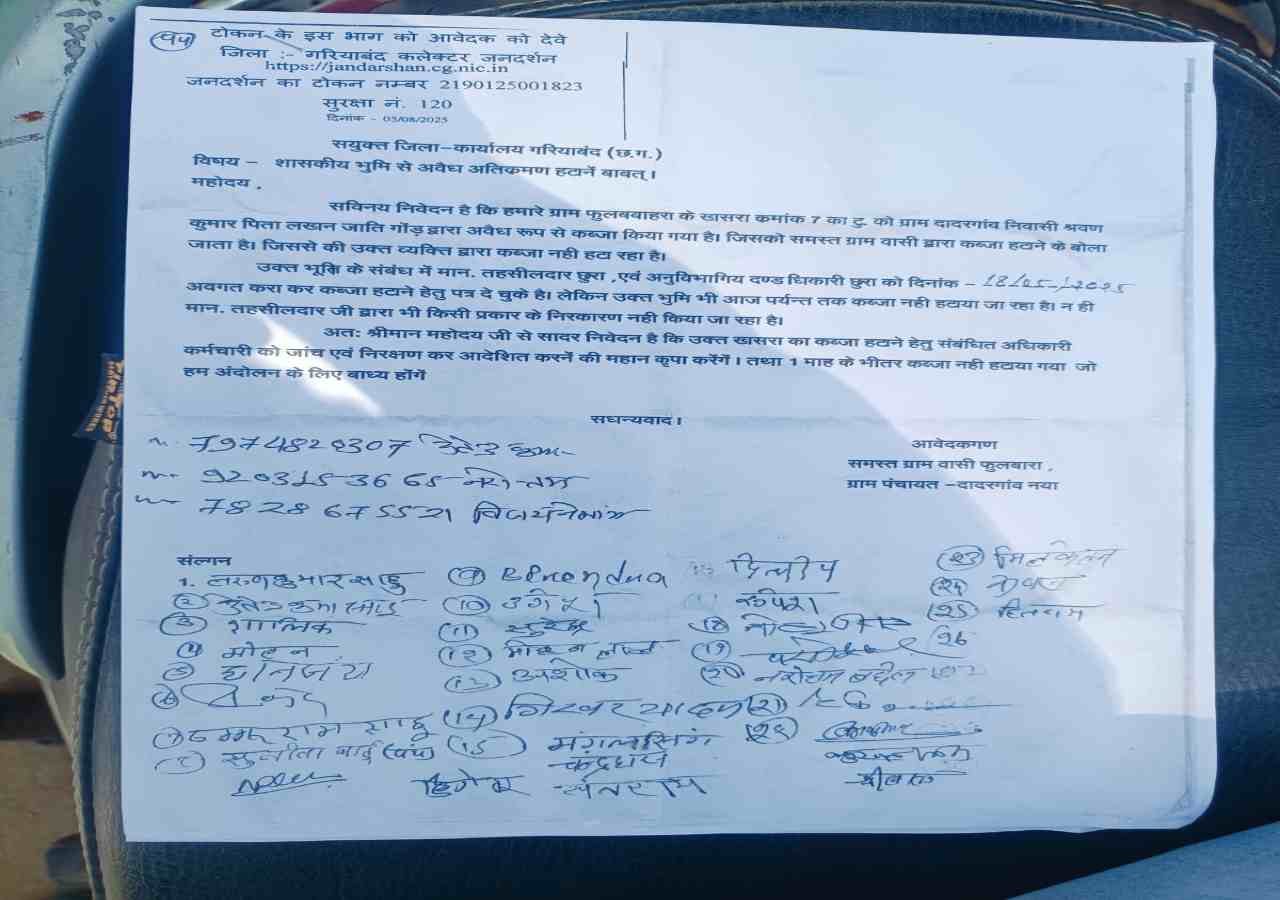 94
टोकन के इस भाग को आवेदक को देवे
जिला :- गरियाबंद कलेक्टर जनदर्शन
https://jandarshan.cg.nic.in
जनदर्शन का टोकन नम्बर 2190125001823
सुरक्षा नं. 120
दिनांक - 05/08/2025
सयुक्त जिला–कार्यालय गरियाबंद (छ.ग.)
विषय – शासकीय भुमि से अवैध अतिक्रमण हटानें बाबत्।
महोदय ,
सविनय निवेदन है कि हमारे ग्राम फुलबबाहरा के खासरा कमांक 7 का टु. को ग्राम दादरगांव निवासी श्रवण
कुमार पिता लखान जाति गोंड़ द्वारा अवैध रूप से कब्जा किया गया है। जिसको समस्त ग्राम वासी द्वारा कब्जा हटाने के बोला
जाता है। जिससे की उक्त व्यक्ति द्वारा कब्जा नही हटा रहा है।
उक्त भूमि के संबंध में मान. तहसीलदार छुरा ,एवं अनुविभागिय दण्डधिकारी छुरा को दिनांक – 18/05/2025
अवगत करा कर कब्जा हटाने हेतु पत्र दे चुके है। लेकिन उक्त भुमि भी आज पर्यन्त तक कब्जा नही हटाया जा रहा है। न ही
मान. तहसीलदार जी द्वारा भी किसी प्रकार के निरकारण नही किया जा रहा है।
अतः श्रीमान महोदय जी से सादर निवेदन है कि उक्त खासरा का कब्जा हटाने हेतु संबंधित अधिकारी
कर्मचारी को जांच एवं निरक्षण कर आदेशित करनें की महान कृपा करेंगें। तथा 1 माह के भीतर कब्जा नही हटाया गया जो
हम अंदोलन के लिए बाध्य होंगें
सधन्यवाद।
7974828307
आवेदकगण
9203153665
समस्त ग्राम वासी फुलबारा ,
7828675521
ग्राम पंचायत –दादरगांव नया
संल्गन
1. तरुण कुमार साहु (9) (17) दिलीप (23)
(2) (10) उमेश (24) केवल
(3) शालिक (11) सुरेन्द्र (18) (25)
(4) मोहन (12) मोहन लाल (19) (26)
(5) (13) अशोक (20) नरोत्तम
(6) (14) गिरवर यादव (21)
(7) साहू (15) मंगलसिंग (22)
(8) सुनीता बाई (पंच) चंद्रहास
संतराम